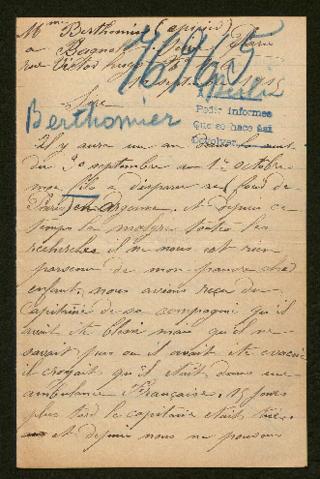 Mme Berthomier (épicier)
a Bagnolet
rue Victor hugo
46465
Berlin
Sire
Pedir informes
Que se hace así
Berthomier
Il y aura un an
du 30 septembre au 1er octobre
mon fils a disparu au
Paris en Argonne. et depuis ce
temps la malgre toutes les
recherches il ne nous est rien
parvenu de mon pauvre cher
enfant, nous avions reçu du
Capitaine de sa compagnie qu'il
avait été blessé mais qu'il ne
savait pas ou il avait été evacué
il croyait qu'il était dans une
ambulance Française. 15 jours
plus tard le capitaine était tué.
et depuis nous ne pouvons